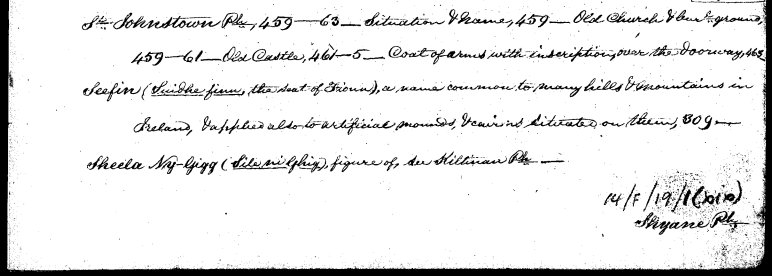 St. Johnstown Ph., 459—63— Situation & name, 459— Old Church & burl. ground,
459—61— Old Castle, 461—5— Coat of arms with inscription, over the doorway, 463
Seefin (Suidhe finn, the seat of Fionn), a name common to many hills & mountains in
Ireland, & applied also to artificial mounds, & cairns situated on them, 309—
Sheela Ny-Gigg (Sile ni Ghig), figure of, see Kiltinan Ph.—
14/F/19/1(xix)
Shyane Ph.